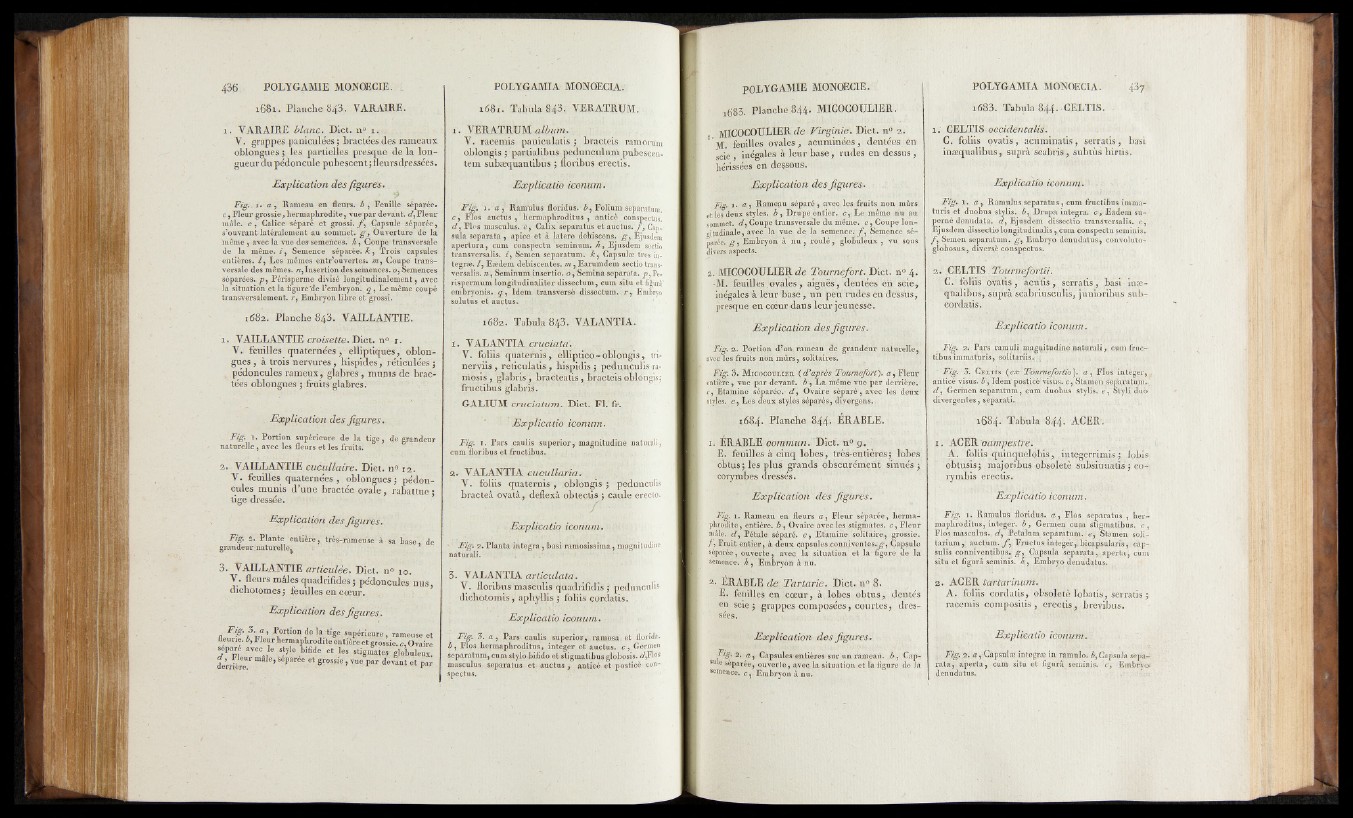 436 POLYGAMIE MONŒCIE.
1681. Planche 843. VARAIRE.
1. VARAIRE blanc. Dict. n° 1.
V. grappes paniculées ; bractées des rameaux
oblongues ; les partielles presque de la lon-
gueur du pédoncule pubescent ; fleurs dressées.
Explication des figures.
Fig. 1. a, Rameau en fleurs. b, Feuille séparée.
c, Fleur grossie, hermaphrodite, vue par devant. d, Fleur
mâle. e, Calice séparé et grossi. f, Capsule séparée,
s'ouvrant latéralement au sommet. g, Ouverture de la
même, avec la vue des semences. h, Coupe transversale
de la même. i, Semence séparée. k, Trois capsules
entières. l, Les mêmes entr'ouvertes. m, Coupe trans-
versale des mêmes. n, Insertion des semences. o, Semences
séparées. p, Périsperme divisé longitudinalement, avec
la situation et la figure de l'embryon. q, Le même coupé
transversalement. r, Embryon libre et grossi.
1682. Planche 843. VAILLANTIE.
1. VAILLANTIE croisette. Dict. n° 1.
V. feuilles quaternées, elliptiques, oblon-
gues, à trois nervures, hispides, réticulées ;
pédoncules rameux, glabres, munis de brac-
tées oblongues ; fruits glabres.
Explication des figures.
Fig. 1. Portion supérieure de la tige, de grandeur
naturelle, avec les fleurs et les fruits.
2. VAILLANTIE cucullaire. Dict. n° 12.
V. feuilles quaternées, oblongues ; pédon-
cules munis d'une bractée ovale, rabattue ;
tige dressée.
Explication des figures.
Fig. 2. Plante entière, très-rameuse à sa base, de
grandeur naturelle.
3. VAILLANTIE articulée. Dict. n° 10.
V. fleurs mâles quadrifides ; pédoncules nus,
dichotomes ; feuilles en cœur.
Explication des figures.
Fig. 3. a, Portion de la tige supérieure, rameuse et
fleurie. b, Fleur hermaphrodite entière et grossie. c, Ovaire
séparé avec le style bifide et les stigmates globuleux.
d, Fleur mâle, séparée et grossie, vue par devant et par
derrière.
POLYGAMIA MONŒCIA.
1681. Tabula 843. VERATRUM.
1. VERATRUM album.
V. racemis paniculatis ; bracteis ramorum
oblongis ; partialibus pedunculum pubescen-
tem subæquantibus ; floribus erectis.
Explicatio iconum.
Fig. 1. a, Ramulus floridus. b, Folium separatum.
c, Flos auctus, hermaphroditus, anticè conspectus.
d, Flos masculus. e, Calix separatus et auctus. f, Cap-
sula separata, apice et à latere dehiscens. g, Ejusdem
apertura, cum conspectu seminum. h, Ejusdem sectio
transversalis. i, Semen separatum. k, Capsulæ tres in-
tegræ. l, Eædem dehiscentes. m, Earumdem sectio trans-
versalis. n, Seminum insertio. o, Semina separata. p, Pe-
rispermum longitudinaliter dissectum, cum situ et figurâ
embryonis. q, Idem transversè dissectum. r, Embryo
solutus et auctus.
1682. Tabula 843. VALANTIA.
1. VALANTIA cruciata.
V. foliis quaternis, elliptico-oblongis, tri-
nerviis, reticulatis, hispidis ; pedunculis ra-
mosis, glabris, bracteatis, bracteis oblongis ;
fructibus glabris.
GALIUM cruciatum. Dict. Fl. fr.
Explicatio iconum.
Fig. 1. Pars caulis superior, magnitudine naturali,
cum floribus et fructibus.
2. VALANTIA cucullaria.
V. foliis quaternis, oblongis ; pedunculis
bracteâ ovatâ, deflexâ obtectis ; caule erecto.
Explicatio iconum.
Fig. 2. Planta integra, basi ramosissima, magnitudine
naturali.
3. VALANTIA articulata.
V. floribus masculis quadrifidis ; pedunculis
dichotomis, aphyllis ; foliis cordatis.
Explicatio iconum.
Fig. 3. a, Pars caulis superior, ramosa et florida.
b, Flos hermaphroditus, integer et auctus. c, Germen
separatum, cum stylo bifido et stigmatibus globosis. d, Flos
masculus separatus et auctus, anticè et posticè con-
spectus.
POLYGAMIE MONŒCIE.
1683. Planche 844. MICOCOULIER.
1. MICOCOULIER de Virginie. Dict. n° 2.
M. feuilles ovales, acuminées, dentées en
scie, inégales à leur base, rudes en dessus,
hérissées en dessous.
Explication des figures.
Fig. 1. a, Rameau séparé, avec les fruits non mûrs
et les deux styles. b, Drupe entier. c, Le même nu au
sommet. d, Coupe transversale du même. e, Coupe lon-
gitudinale, avec la vue de la semence. f, Semence sé-
parée. g, Embryon à nu, roulé, globuleux, vu sous
divers aspects.
2. MICOCOULIER de Tournefort. Dict. n° 4.
M. feuilles ovales, aiguës, dentées en scie,
inégales à leur base, un peu rudes en dessus,
presque en cœur dans leur jeunesse.
Explication des figures.
Fig. 2. Portion d'un rameau de grandeur naturelle,
avec les fruits non mûrs, solitaires.
Fig. 3. MICOCOULIER (d'après Tournefort). a, Fleur
entière, vue par devant. b, La même vue par derrière.
c, Etamine séparée. d, Ovaire séparé, avec les deux
styles. e, Les deux styles séparés, divergens.
1684. Planche 844. ÉRABLE.
1. ÉRABLE commun. Dict. n° 9.
E. feuilles à cinq lobes, très-entières ; lobes
obtus ; les plus grands obscurément sinués ;
corymbes dressés.
Explication des figures.
Fig. 1. Rameau en fleurs a, Fleur séparée, herma-
phrodite, entière. b, Ovaire avec les stigmates. c, Fleur
mâle. d, Pétale séparé. e, Etamine solitaire, grossie.
f, Fruit entier, à deux capsules conniventes. g, Capsule
séparée, ouverte, avec la situation et la figure de la
semence. h, Embryon à nu.
2. ÉRABLE de Tartarie. Dict. n° 8.
E. feuilles en cœur, à lobes obtus, dentés
en scie ; grappes composées, courtes, dres-
sées.
Explication des figures.
Fig. 2. a, Capsules entières sur un rameau. b, Cap-
sule séparée, ouverte, avec la situation et la figure de la
semence. c, Embryon à nu.
POLYGAMIA MONŒCIA. 437
1683. Tabula 844. CELTIS.
1. CELTIS occidentalis.
C. foliis ovatis, acuminatis, serratis, basi
inæqualibus, suprà scabris, subtùs hirtis.
Explicatio iconum.
Fig. 1. a, Ramulus separatus, cum fructibus imma-
turis et duobus stylis. b, Drupa integra. c, Eadem su-
pernè denudata. d, Ejusdem dissectio transversalis. e,
Ejusdem dissectio longitudinalis, cum conspectu seminis.
f, Semen separatum. g, Embryo denudatus, convoluto-
globosus, diversè conspectus.
2. CELTIS Tournefortii.
C. foliis ovatis, acutis, serratis, basi inæ-
qualibus, suprà scabriusculis, junioribus sub-
cordatis.
Explicatio iconum.
Fig. 2. Pars ramuli magnitudine naturali, cum fruc-
tibus immaturis, solitariis.
Fig. 3. CELTIS (ex Tournefortio). a, Flos integer,
anticè visus. b, Idem posticè visus. c, Stamen separatum.
d, Germen separatum, cum duobus stylis. e, Styli duo
divergentes, separati.
1684. Tabula 844. ACER.
1. ACER campestre.
A. foliis quinquelobis, integerrimis ; lobis
obtusis ; majoribus obsoletè subsinuatis ; co-
rymbis erectis.
Explicatio iconum.
Fig. 1. Ramulus floridus. a, Flos separatus, her-
maphroditus, integer. b, Germen cum stigmatibus. c,
Flos masculus. d, Petalum separatum. e, Stamen soli-
tarium, auctum. f, Fructus integer, bicapsularis, cap-
sulis conniventibus. g, Capsula separata, aperta, cum
situ et figurâ seminis. h, Embryo denudatus.
2. ACER tartarinum.
A. foliis cordatis, obsoletè lobatis, serratis ;
racemis compositis, erectis, brevibus.
Explicatio iconum.
Fig. 2. a, Capsulæ integræ in ramulo. b, Capsula sepa-
rata, aperta, cum situ et figurâ seminis. c, Embryo
denudatus.